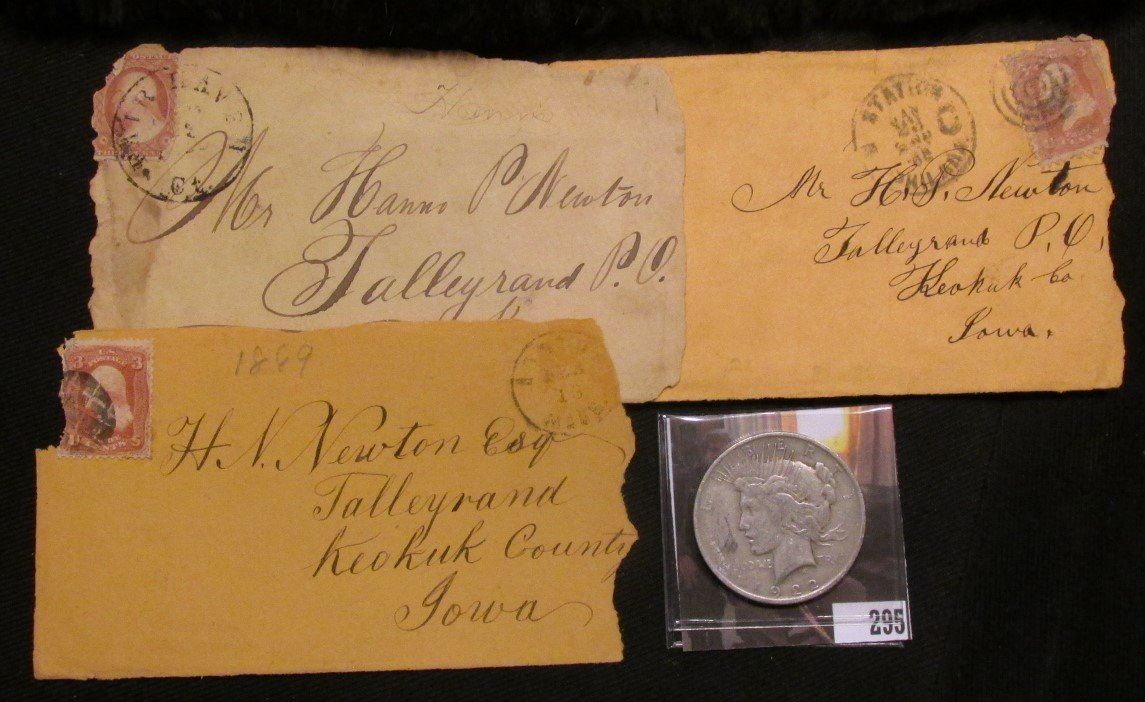 Hanno
Mr Hanno P Newton
Talleyrand P. O.
STATION
MAY
Mr H. N. Newton
Talleyrand P. O.
Keokuk Co
Iowa.
U.S.
3 3
1869
H. N. Newton Esq
Talleyrand
Keokuk County
Iowa
1922
295